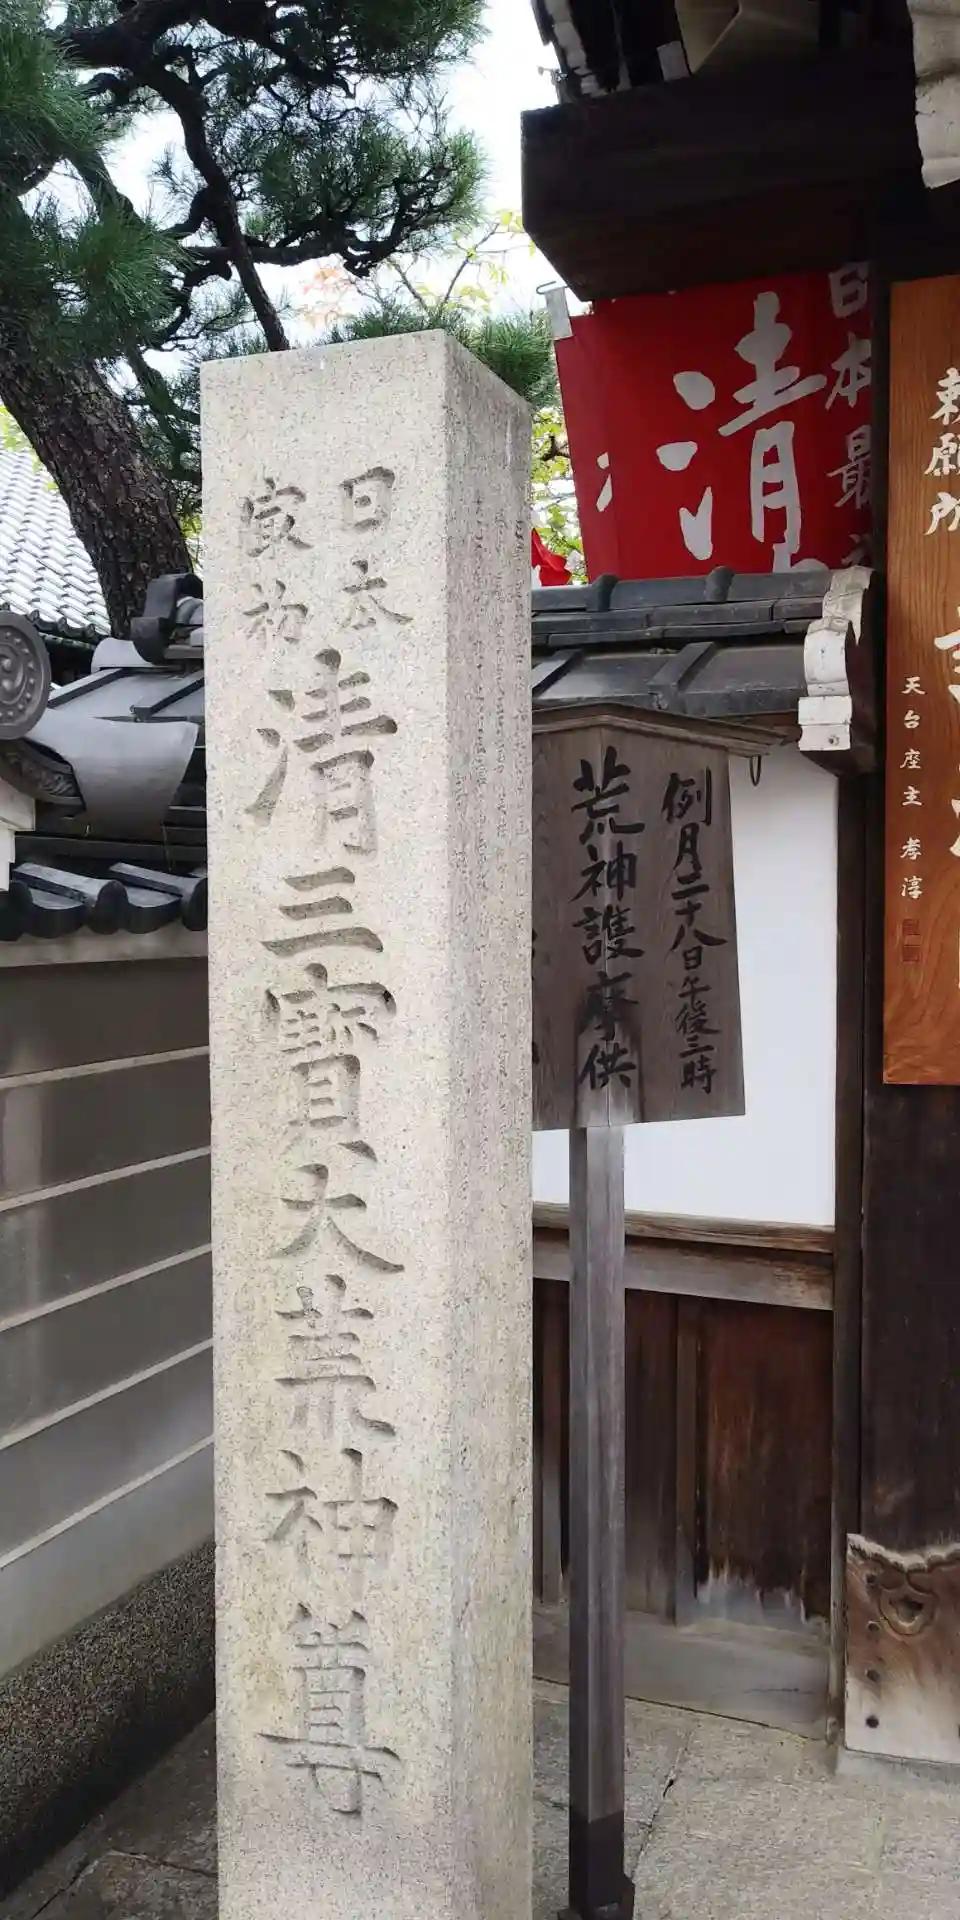 日本
最初
清三寳大荒神尊
例月二十八日午後二時
荒神護摩供
日本最
清
勅願所
天台座主 孝淳